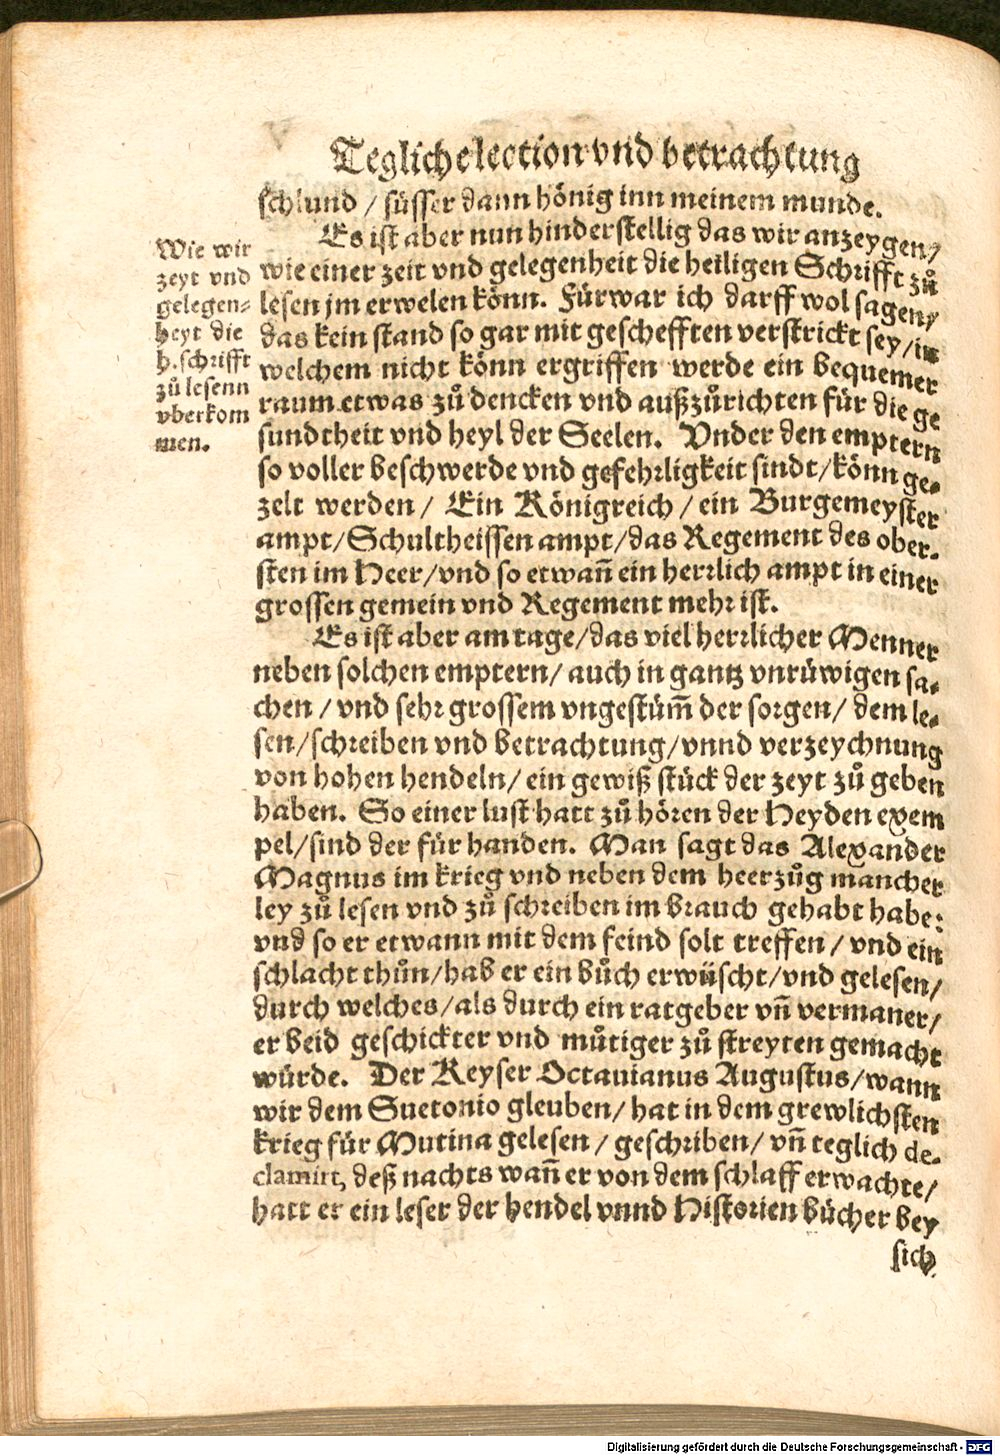 Teglich election vnd betrachtung
schlund / süsser dann hönig inn meinem munde.
Es ist aber nun hinderstellig das wir anzeygen/
wie einer zeit vnd gelegenheit die heiligen Schrifft zů
lesen jm erwelen könn. Fürwar ich darff wol sagen/
das kein stand so gar mit geschefften verstrickt sey/in
welchem nicht könn ergriffen werde ein bequemer
raum etwas zů dencken vnd außzůrichten für die ge
sundtheit vnd heyl der Seelen. Vnder den emptern
so voller beschwerde vnd gefehrligkeit sindt/könn ge-
zelt werden / Ein Königreich / ein Burgemeyster
ampt/Schultheissen ampt/das Regement des ober-
sten im Heer/vnd so etwañ ein herrlich ampt in einer
grossen gemein vnd Regement mehr ist.
Es ist aber am tage/das viel herrlicher Menner
neben solchen emptern/ auch in gantz vnrüwigen sa-
chen / vnd sehr grossem vngestüm̃ der sorgen/ dem le-
sen/schreiben vnd betrachtung/vnnd verzeychnung
von hohen hendeln/ ein gewiß stück der zeyt zů geben
haben. So einer lust hatt zů hören der Heyden exem
pel/sind der für handen. Man sagt das Alexander
Magnus im krieg vnd neben dem heerzůg mancher
ley zů lesen vnd zů schreiben im brauch gehabt habe:
vnd so er etwann mit dem feind solt treffen / vnd ein
schlacht thůn/hab er ein bůch erwüscht/vnd gelesen/
durch welches/als durch ein ratgeber vñ vermaner/
er beid geschickter vnd můtiger zů streyten gemacht
würde. Der Keyser Octauianus Augustus/wann
wir dem Suetonio gleuben/ hat in dem grewlichsten
krieg für Mutina gelesen / geschriben/ vñ teglich de-
clamirt, deß nachts wañ er von dem schlaff erwachte/
hatt er ein leser der hendel vnnd Historien bücher bey
sich
Wie wir
zeyt vnd
gelegen-
heyt die
h.schrifft
zů lesenn
vberkom
men.
Digitalisierung gefördert durch die Deutsche Forschungsgemeinschaft - DFG